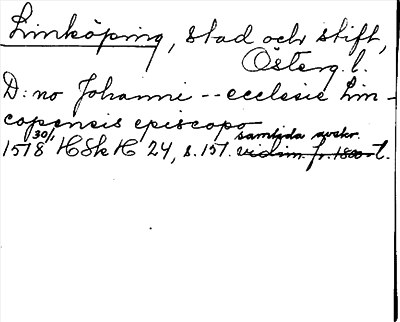 Linköping, stad och stift,
Österg. l.
D:no Johanni -- ecclesie Lin-
copensis episcopo
samtida avskr.
1518 30/1 HSkH 24, s. 157. vidim. fr. 1800-t.